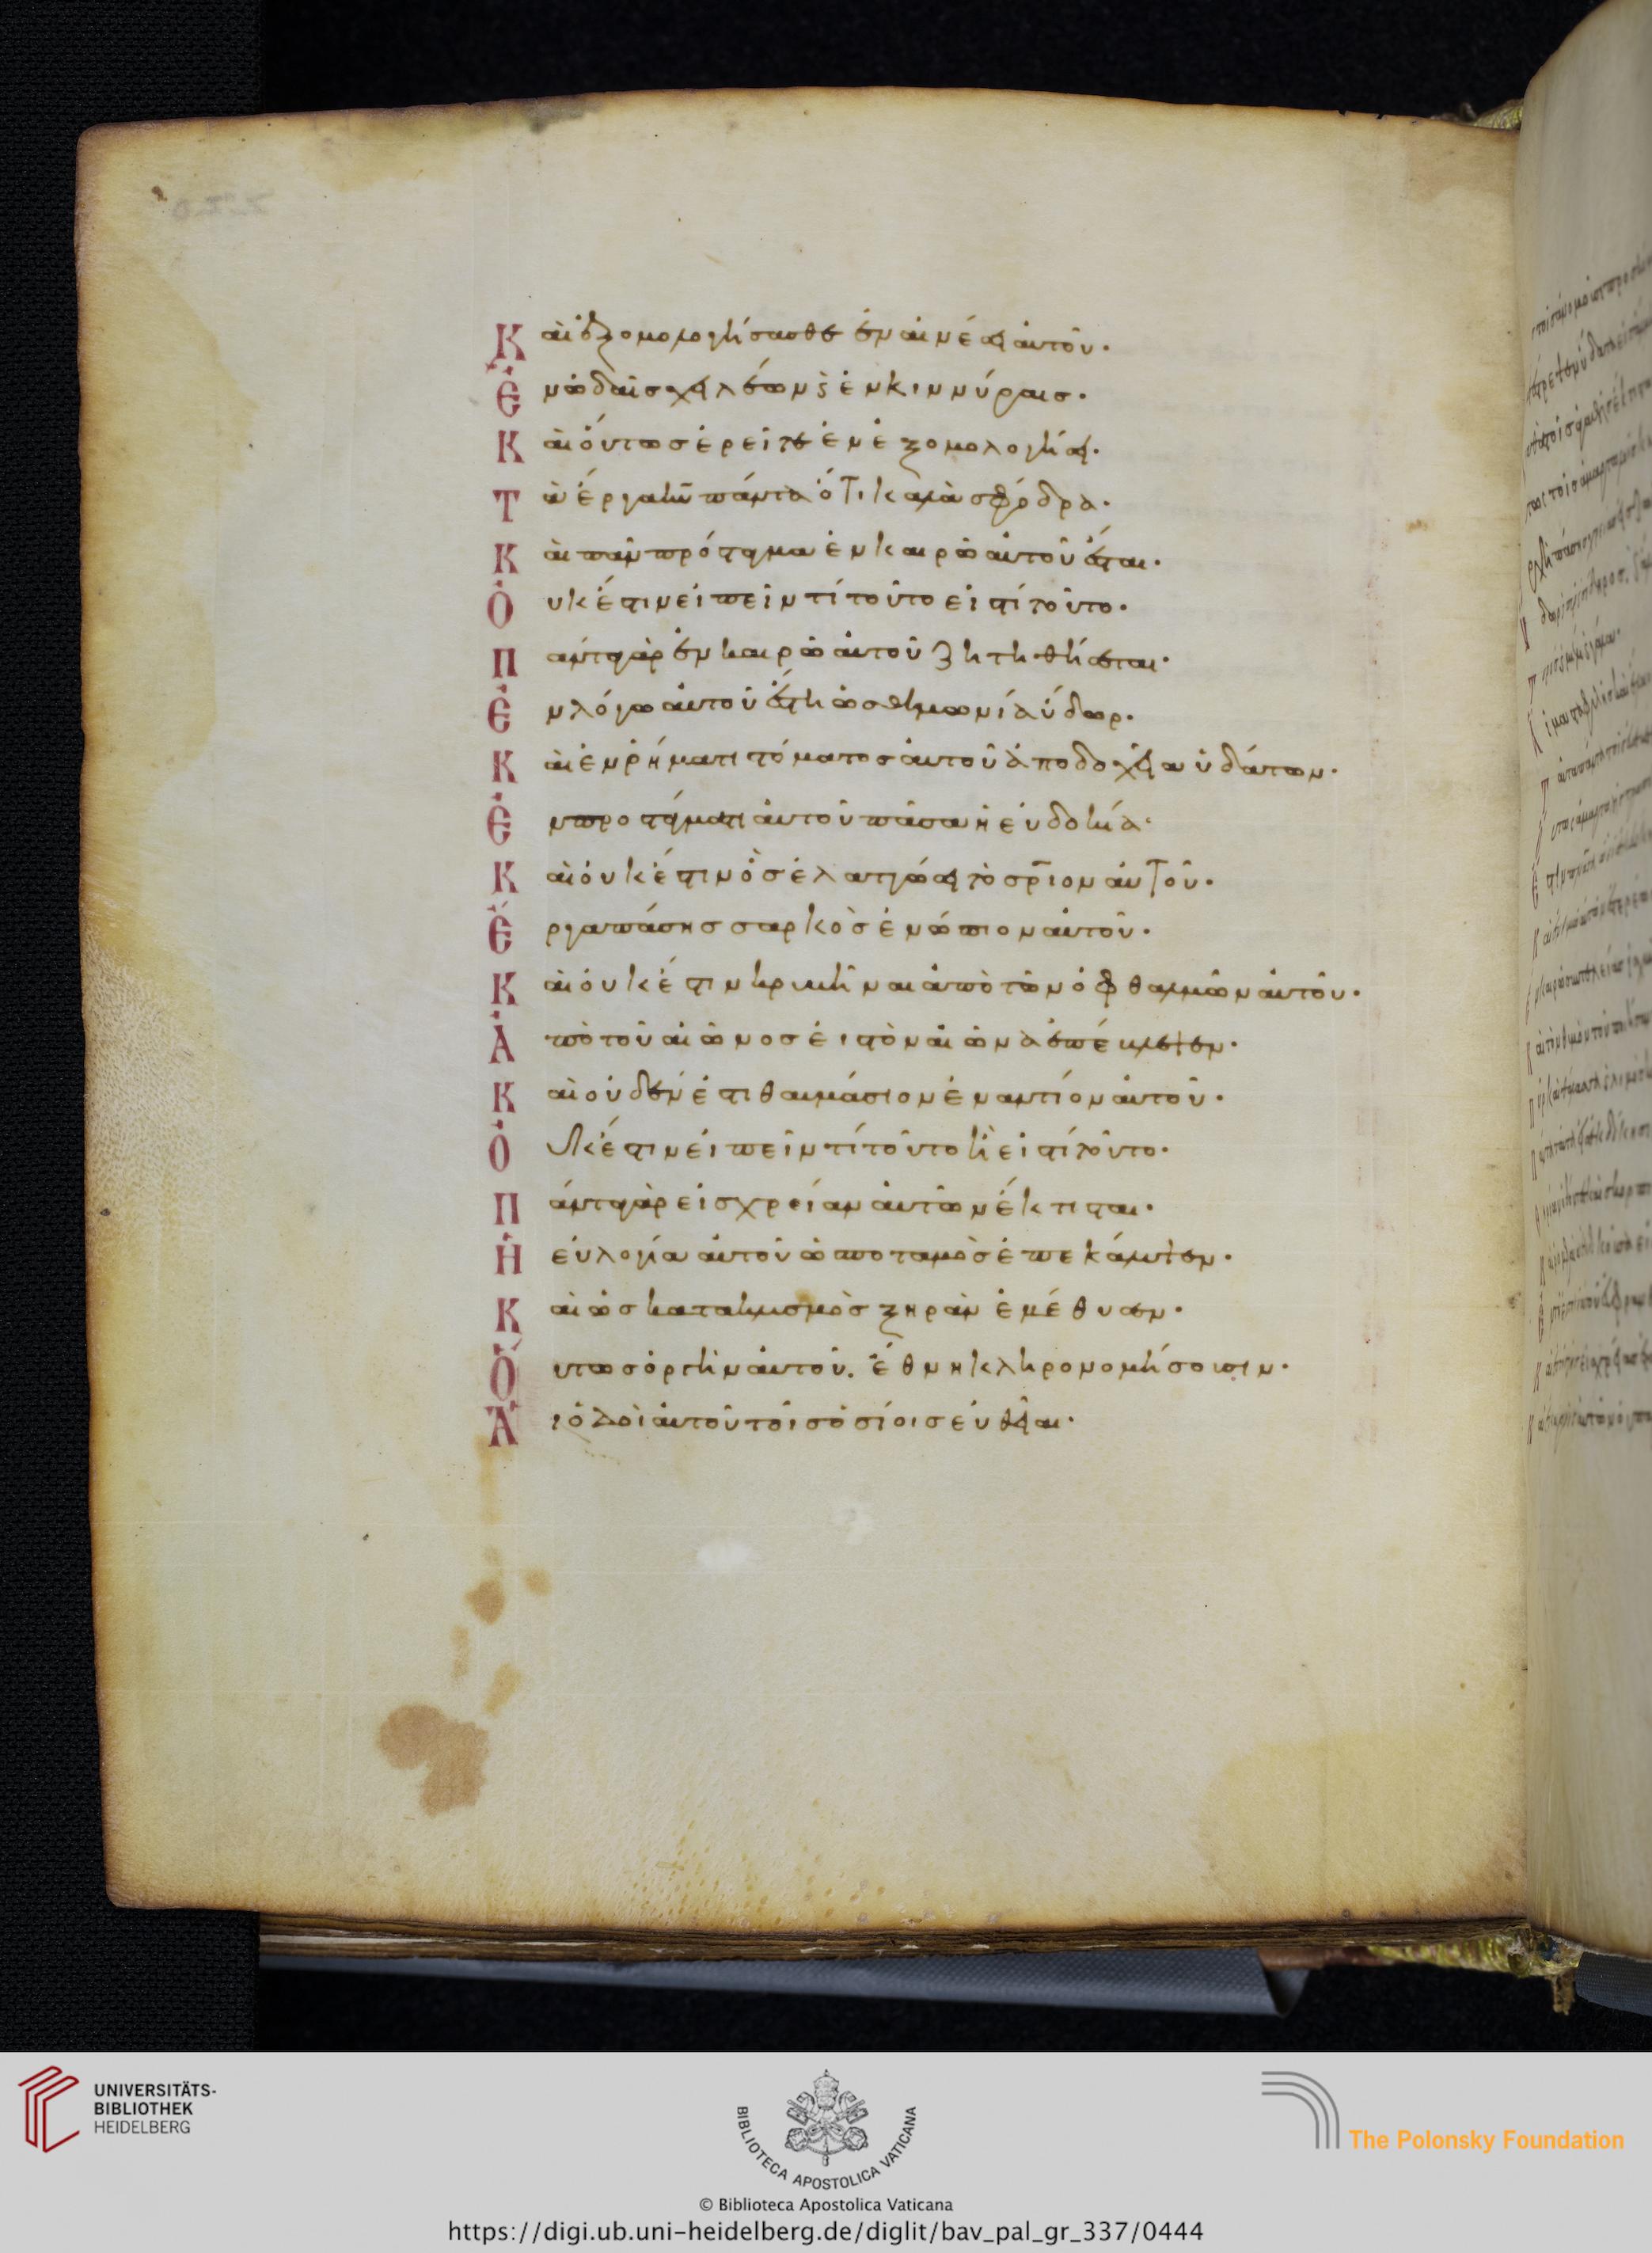 Καὶ ἐξομολογήσασθε ἐν αἰνέσει αὐτοῦ·
Ἐν ὠδαῖς χειλέων ϗ ἐν κιννύραις·
Καὶ οὕτως ἐρεῖτε ἐν ἐξομολογήσει·
Τὰ ἔργα κυ πάντα ὅτι καλὰ σφόδρα·
Καὶ πᾶν πρόσταγμα ἐν καιρῶ αὐτοῦ ἔσται·
Οὐκ ἔστιν εἰπεῖν τί τοῦτο εἰς τί τοῦτο·
Πάντα γὰρ ἐν καιρῶ αὐτοῦ ζητηθήσεται·
Ἐν λόγω αὐτοῦ ἔστη ὡς θημωνία ὕδωρ·
Καὶ ἐν ῥήματι στόματος αὐτοῦ ἀποδοχεῖα ὑδάτων·
Ἐν προστάγματι αὐτοῦ πᾶσα ἡ εὐδοκία·
Καὶ οὐκ ἔστιν ὃς ἐλαττώσει τὸ σριον αὐτοῦ·
Ἔργα πάσης σαρκὸς ἐνώπιον αὐτοῦ·
Καὶ οὐκ ἔστιν κρυβῆναι ἀπὸ τῶν ὀφθαλμῶν αὐτοῦ·
Ἀπὸ τοῦ αἰῶνος εἰς τὸν αἰῶνα ἐπέβλεψεν·
Καὶ οὐδέν ἐστι θαυμάσιον ἐναντίον αὐτοῦ·
Οὐκ ἔστιν εἰπεῖν τί τοῦτο ἢ εἰς τί τοῦτο·
Πάντα γὰρ εἰς χρείαν αὐτῶν ἔκτισται·
Ἡ εὐλογία αὐτοῦ ὡς ποταμὸς ἐπεκάλυψεν·
Καὶ ὡς κατακλυσμὸς ξηρὰν ἐμέθυσεν·
Οὕτως ὀργὴν αὐτοῦ. ἔθνη κληρονομήσουσιν·
Αἱ ὁδοὶ αὐτοῦ τοῖς ὁσίοις εὐθεῖαι·
UNIVERSITÄTS-
BIBLIOTHEK
HEIDELBERG
BIBLIOTECA APOSTOLICA VATICANA
The Polonsky Foundation
© Biblioteca Apostolica Vaticana
https://digi.ub.uni-heidelberg.de/diglit/bav_pal_gr_337/0444